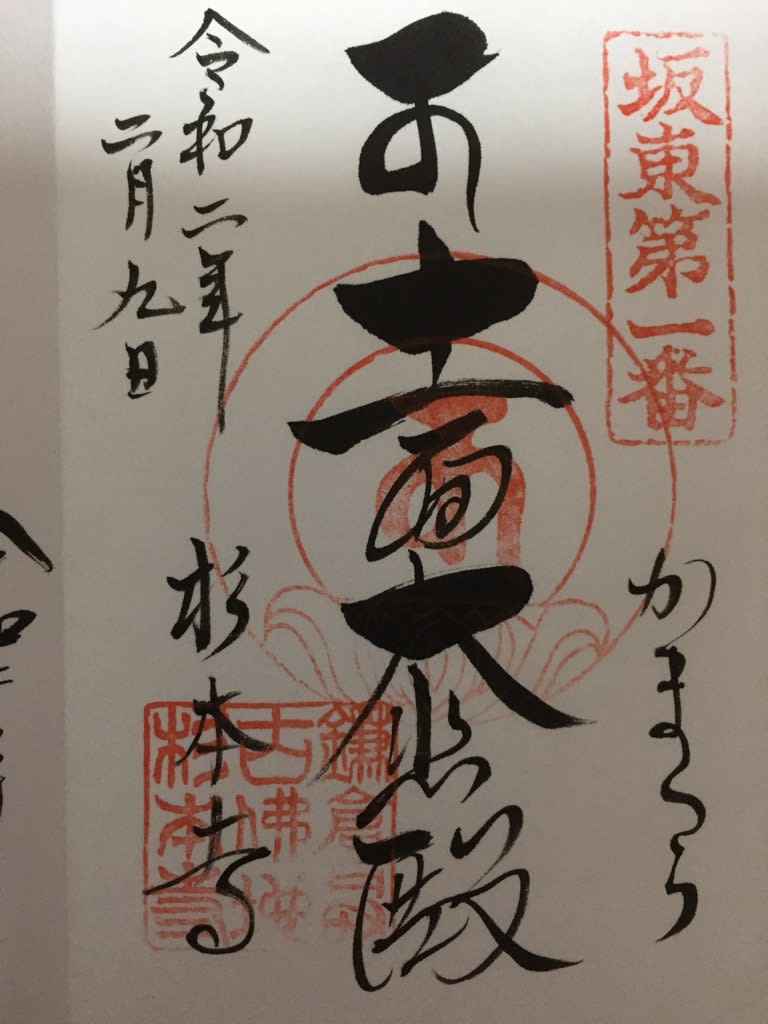 坂東第一番
かまくら
十一面大悲殿
杉本寺
令和二年
二月九日
鎌倉
古佛
杉本寺